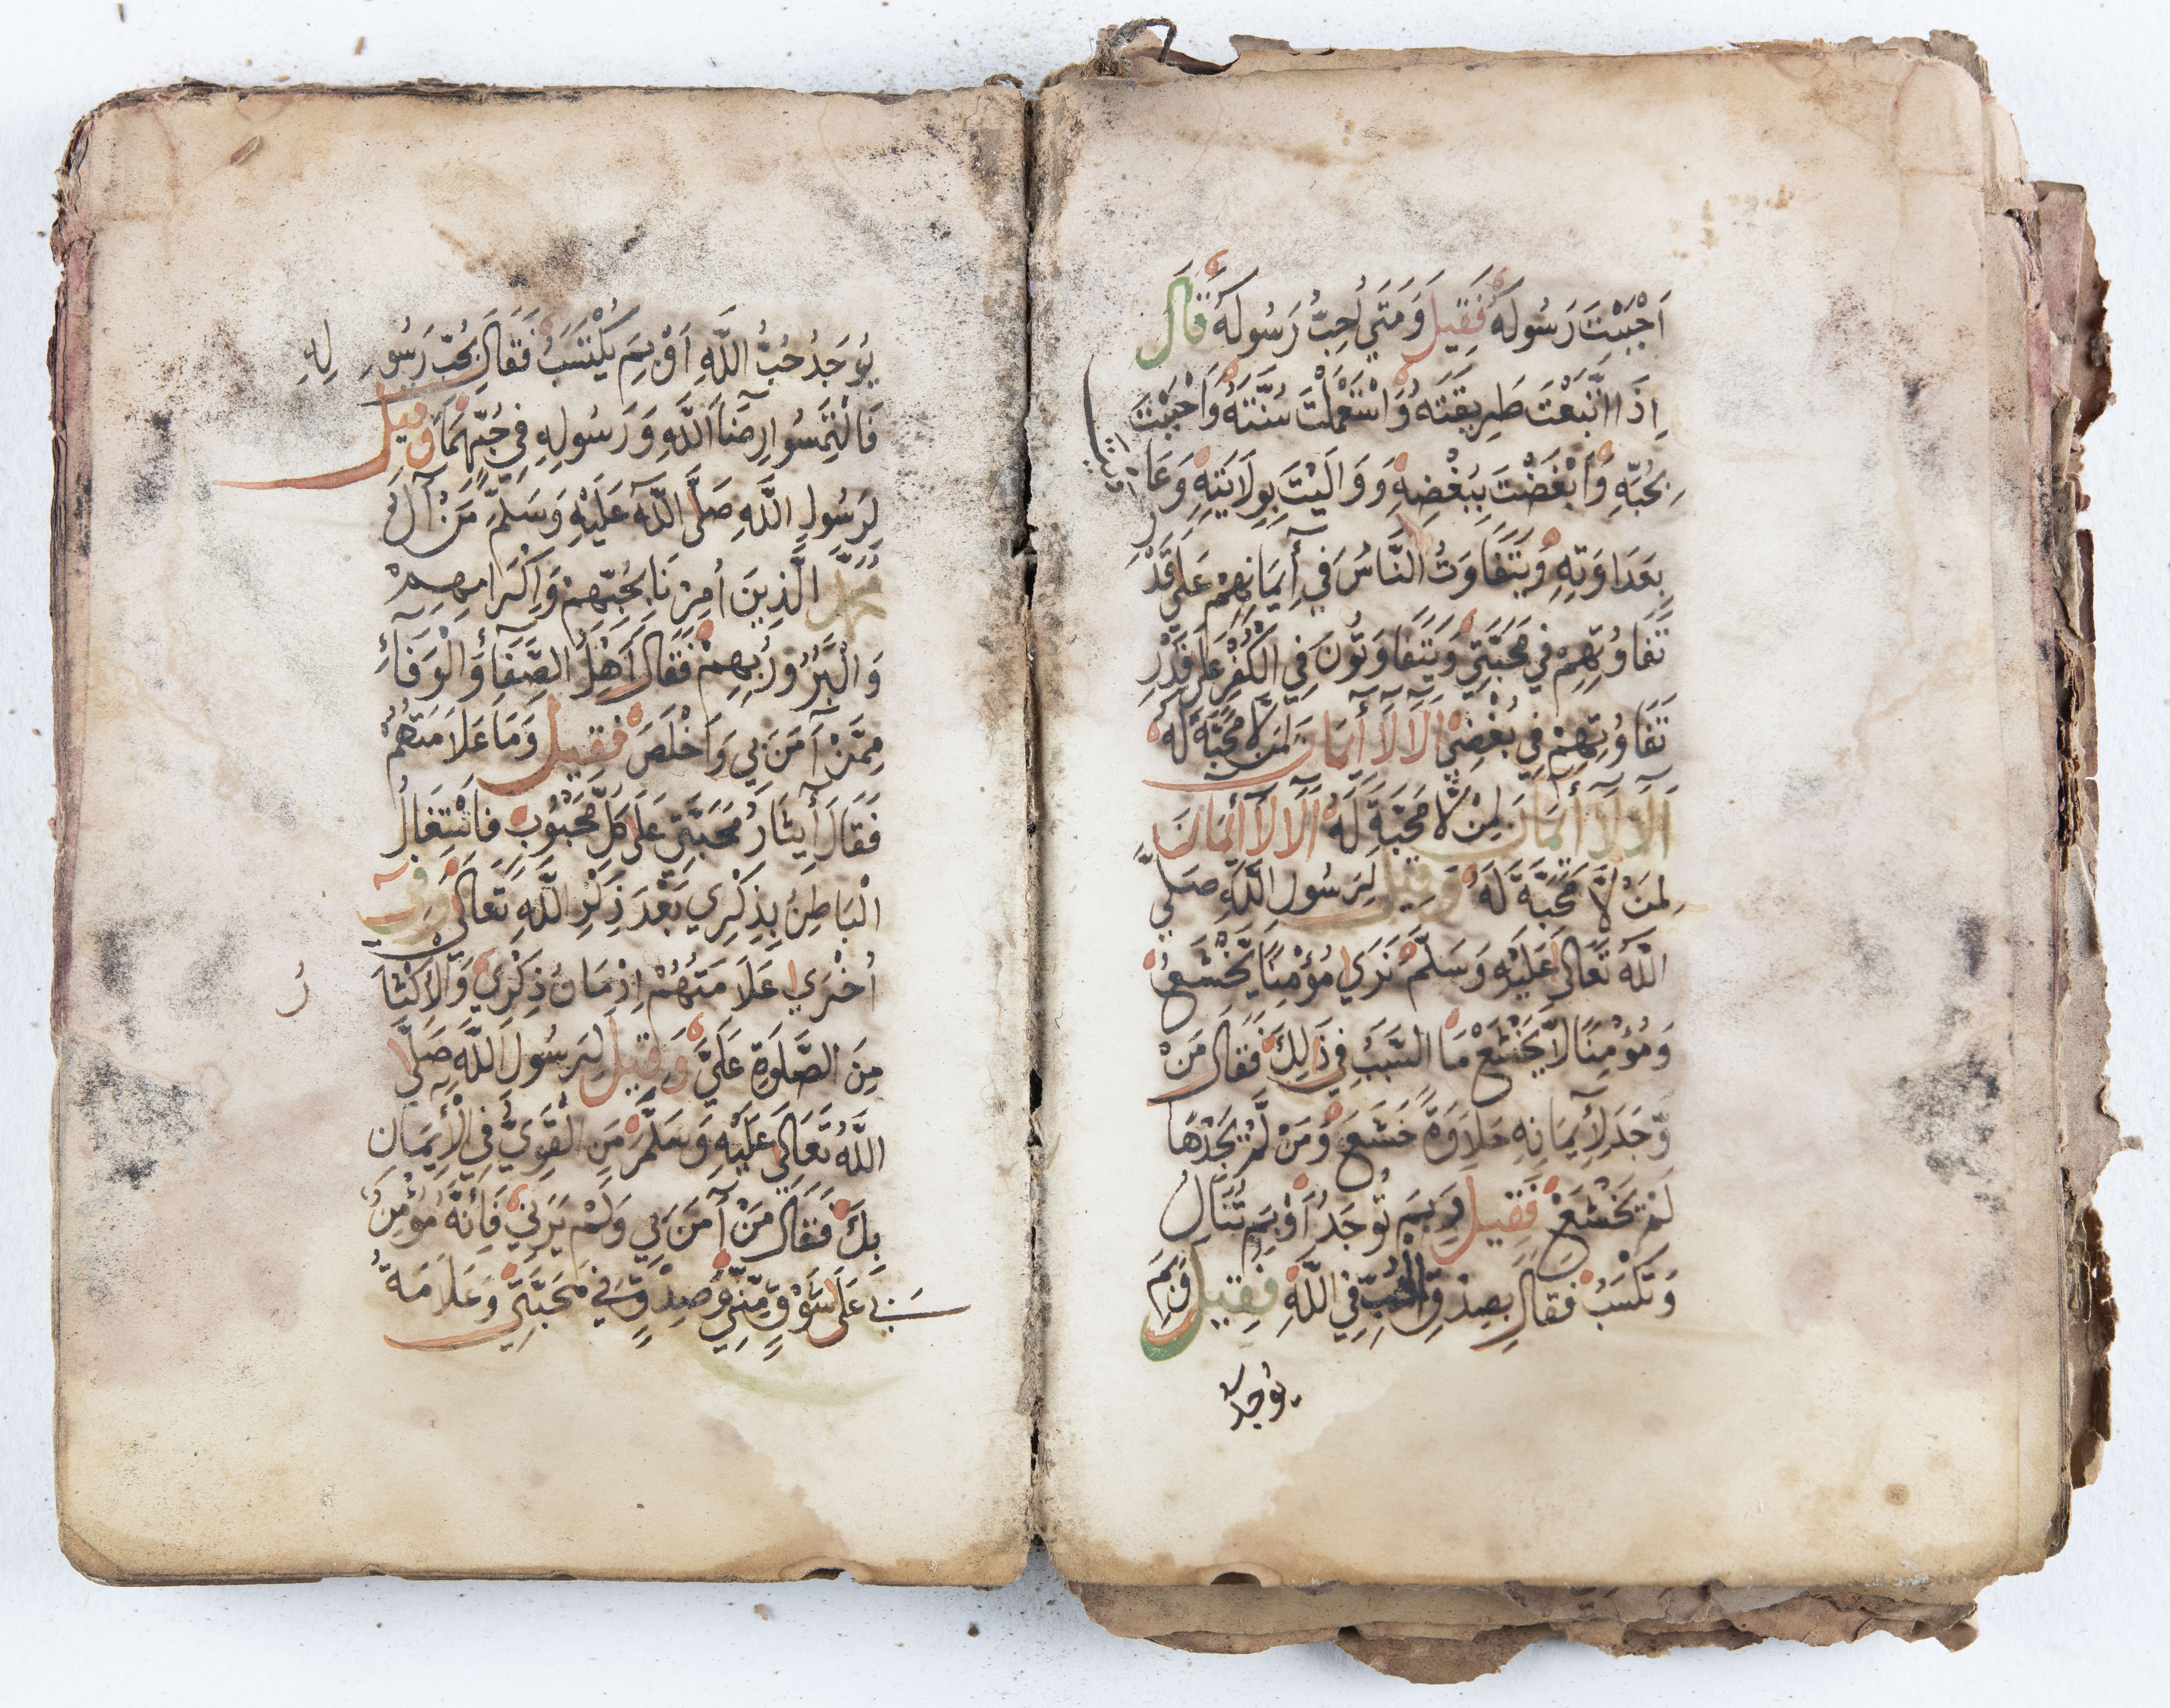 اَحْبَبْتَ رَسُولَهُ فَقِيلَ وَمَتَي اُحِبُّ رَسُولَهُ قَالَ
اِذَا اتَّبَعْتَ طَرِيقَتَهُ وَاسْتَعْمَلْتَ سُنَّتَهُ وَاَحْبَبْتَ
بِحُبِّهِ وَاَبْغَضْتَ بِبُغْضِهِ وَوَالَيْتَ بِوِلَايَتِهِ وَعَا
بِعَدَاوَتِهِ وَيَتَفَاوَتُ النَّاسُ فِي أِيمَانِهِمْ عَلَي قَدْرِ
تَفَاوُتِهِمْ فِي مَحَبَّتِي وَيَتَفَاوَتُونَ فِي الْكُفْرِ عَلَي قَدْرِ
تَفَاوُتِهِمْ فِي بُغْضِي اَلَا لَآ أِيمَانَ لِمَنْ لَّا مَحَبَّةَ لَهُ
اَلَا لَآ أِيمَانَ لِمَنْ لَّا مَحَبَّةَ لَهُ اَلَا لَآ أِيمَانَ
لِمَنْ لَّا مَحَبَّةَ لَهُ وَقِيلَ لِرَسُولِ اللَّهِ صَلَّي
اللَّهُ تَعَالَي عَلَيْهِ وَسَلَّمَ نَرَي مُؤْمِنًا يَخْشَعُ
وَمُؤْمِنًا لَّا يَخْشَعُ مَا السَّبَبُ فِي ذَلِكَ فَقَالَ مَنْ
وَّجَدَ لِأِيمَانِهِ حَلَاوَةً خَشَعَ وَمَنْ لَّمْ يَجِدْهَا
لَمْ يَخْشَعْ فَقِيلَ وَبِمَ تُوجَدُ اَوْ بِمَ تُنَالُ
وَتُكْسَبُ فَقَالَ بِصِدْقِ الْحُبِّ فِي اللَّهِ فَقِيلَ وَبِمَ
يُوجَدُ
يُوجَدُ حُبُّ اللَّهِ اَوْ بِمَ يُكْتَسَبُ فَقَالَ بِحُبِّ رَسُولِهِ
فَالْتَمِسُوا رِضَآءَ اللَّهِ وَرَسُولِهِ فِي حُبِّهِمَا وَقِيلَ
لِرَسُولِ اللَّهِ صَلَّي اللَّهُ عَلَيْهِ وَسَلَّمَ مَنْ آلُ
مُحَمَّدٍ الَّذِينَ اُمِرْنَا بِحُبِّهِمْ وَاِكْرَامِهِمْ
وَالْبُرُورِ بِهِمْ فَقَالَ اَهْلُ الصَّفَآءِ وَالْوَفَآءِ
مِمَّنْ آمَنَ بِي وَاَخْلَصَ فَقِيلَ وَمَا عَلَامَتُهُمْ
فَقَالَ أِيثَارُ مَحَبَّتِي عَلَي كُلِّ مَحْبُوبٍ فَاشْتِغَالُ
الْبَاطِنِ بِذِكْرِي بَعْدَ ذِكْرِ اللَّهِ تَعَالَي وَفِي
اُخْرَي عَلَامَتُهُمْ اِدْمَانُ ذِكْرِي وَالْاِكْثَارُ
مِنَ الصَّلَوةِ عَلَيَّ وَقِيلَ لِرَسُولِ اللَّهِ صَلَّي
اللَّهُ تَعَالَي عَلَيْهِ وَسَلَّمَ مَنِ الْقَوِيُّ فِي الْأِيمَانِ
بِكَ فَقَالَ مَنْ آمَنَ بِي وَلَمْ يَرَنِي فَأِنَّهُ مُؤْمِنٌ
بِي عَلَي شَوْقٍ مِّنِّي وَصِدْقٍ فِي مَحَبَّتِي وَعَلَامَةُ